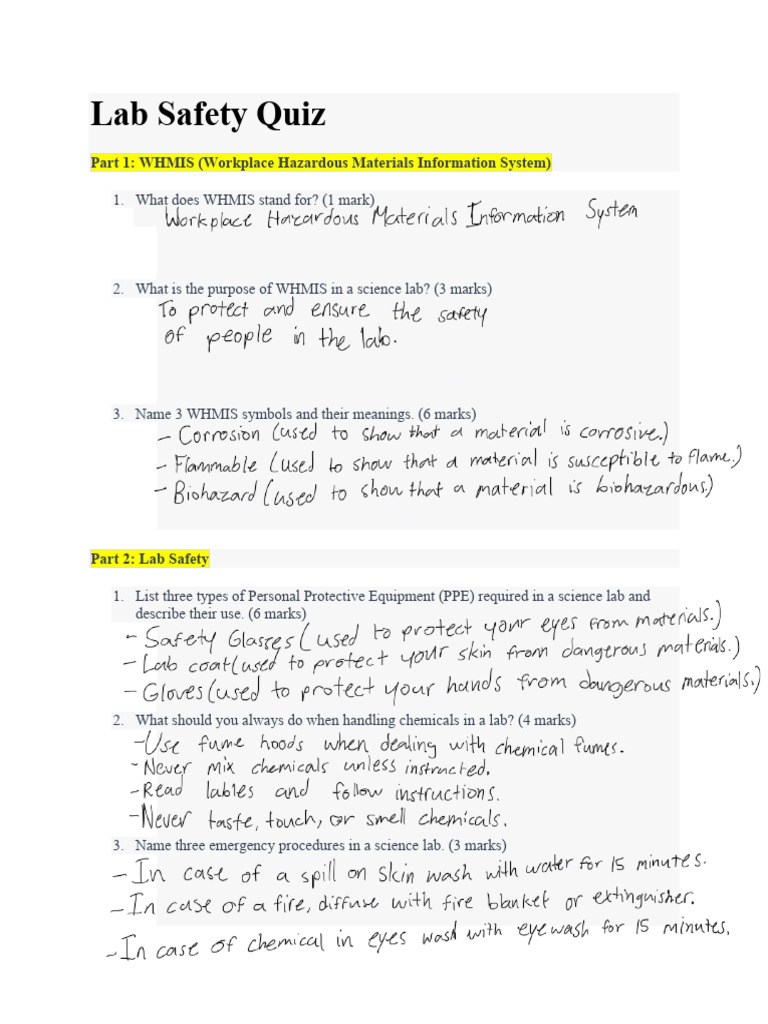 Lab Safety Quiz
Part 1: WHMIS (Workplace Hazardous Materials Information System)
1. What does WHMIS stand for? (1 mark)
Workplace Hazardous Materials Information System
2. What is the purpose of WHMIS in a science lab? (3 marks)
To protect and ensure the safety
of people in the lab.
3. Name 3 WHMIS symbols and their meanings. (6 marks)
- Corrosion (used to show that a material is corrosive.)
- Flammable (used to show that a material is susceptible to flame.)
- Biohazard (used to show that a material is biohazardous.)
Part 2: Lab Safety
1. List three types of Personal Protective Equipment (PPE) required in a science lab and
describe their use. (6 marks)
- Safety Glasses (used to protect your eyes from materials.)
- Lab coat (used to protect your skin from dangerous materials.)
- Gloves (used to protect your hands from dangerous materials.)
2. What should you always do when handling chemicals in a lab? (4 marks)
- Use fume hoods when dealing with chemical fumes.
- Never mix chemicals unless instructed.
- Read lables and follow instructions.
- Never taste, touch, or smell chemicals.
3. Name three emergency procedures in a science lab. (3 marks)
- In case of a spill on skin wash with water for 15 minutes.
- In case of a fire, diffuse with fire blanket or extinguisher.
- In case of chemical in eyes wash with eyewash for 15 minutes.